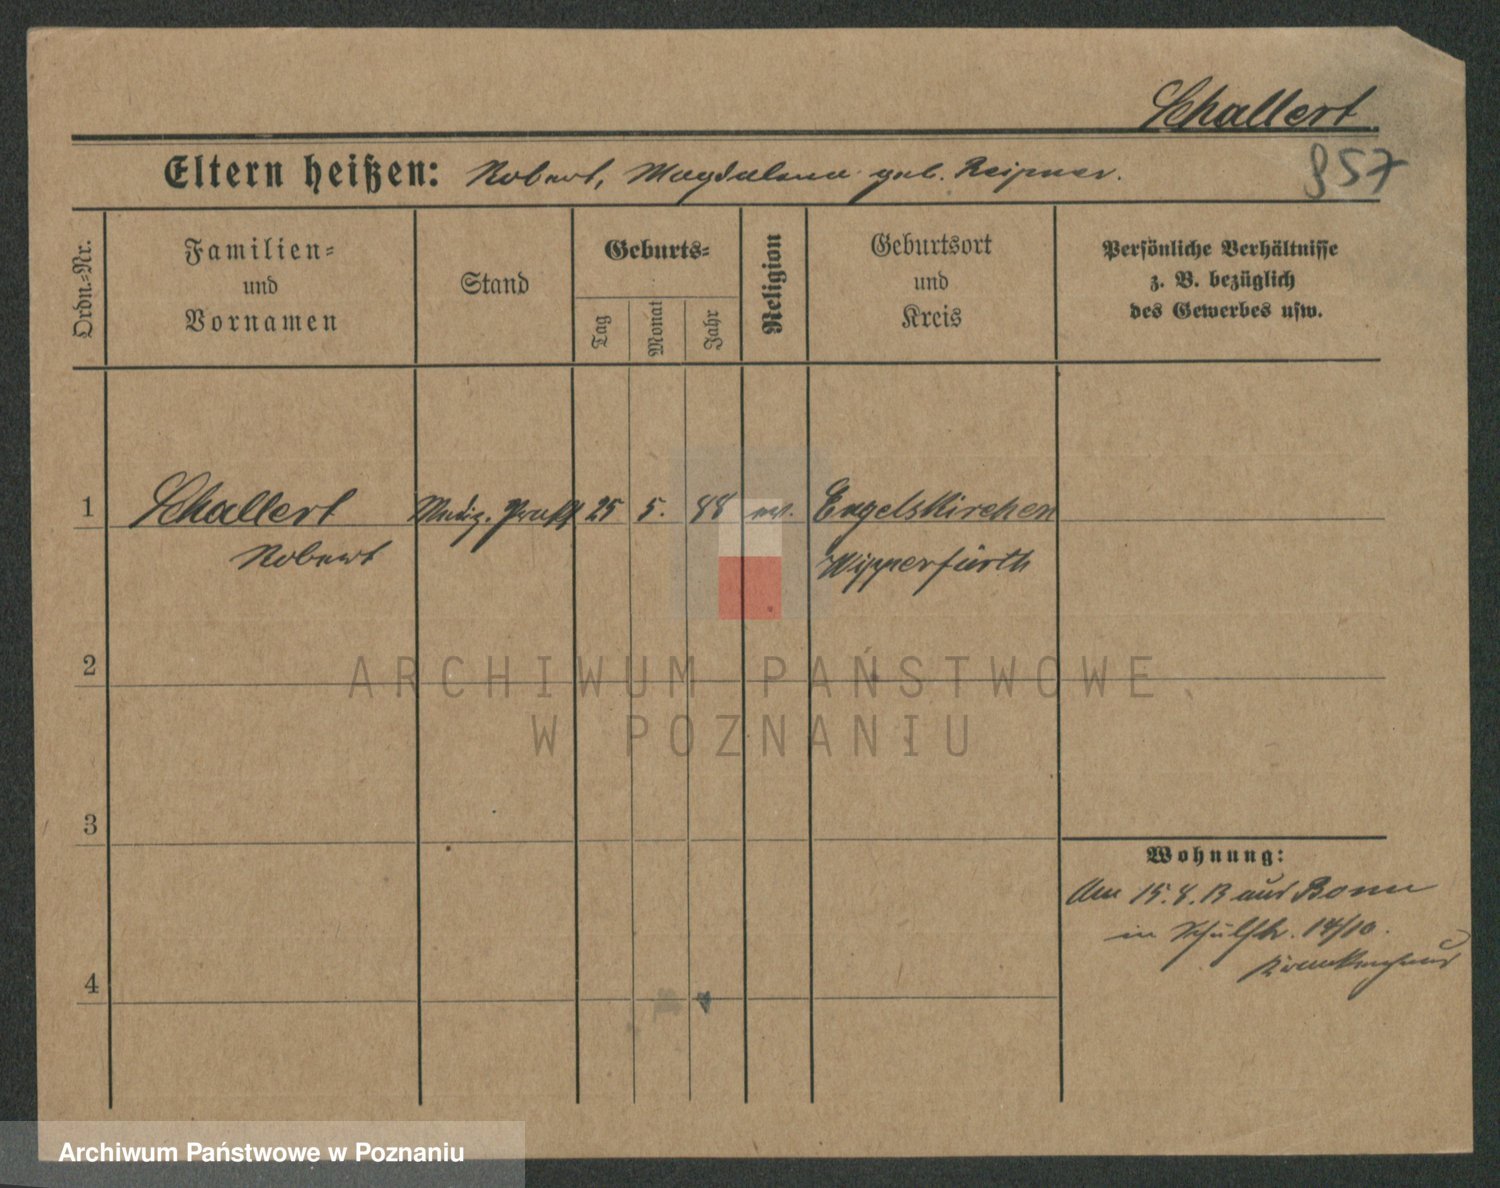 Schallert
857
Eltern heißen: Robert, Magdalena geb. Reipner.
Ordn.-Nr.
Familien-
und
Vornamen
Stand
Geburts-
Tag
Monat
Jahr
Religion
Geburtsort
und
Kreis
Persönliche Verhältnisse
z. B. bezüglich
des Gewerbes usw.
1
Schallert
Mediz. Prakt
25
5.
88
ev.
Engelskirchen
Robert
Wipperfürth
2
ARCHIWUM PAŃSTWOWE
W POZNANIU
3
Wohnung:
Am 15.8.13 aus Bonn
in Schulstr. 14/10.
Krankenhaus
4
Archiwum Państwowe w Poznaniu